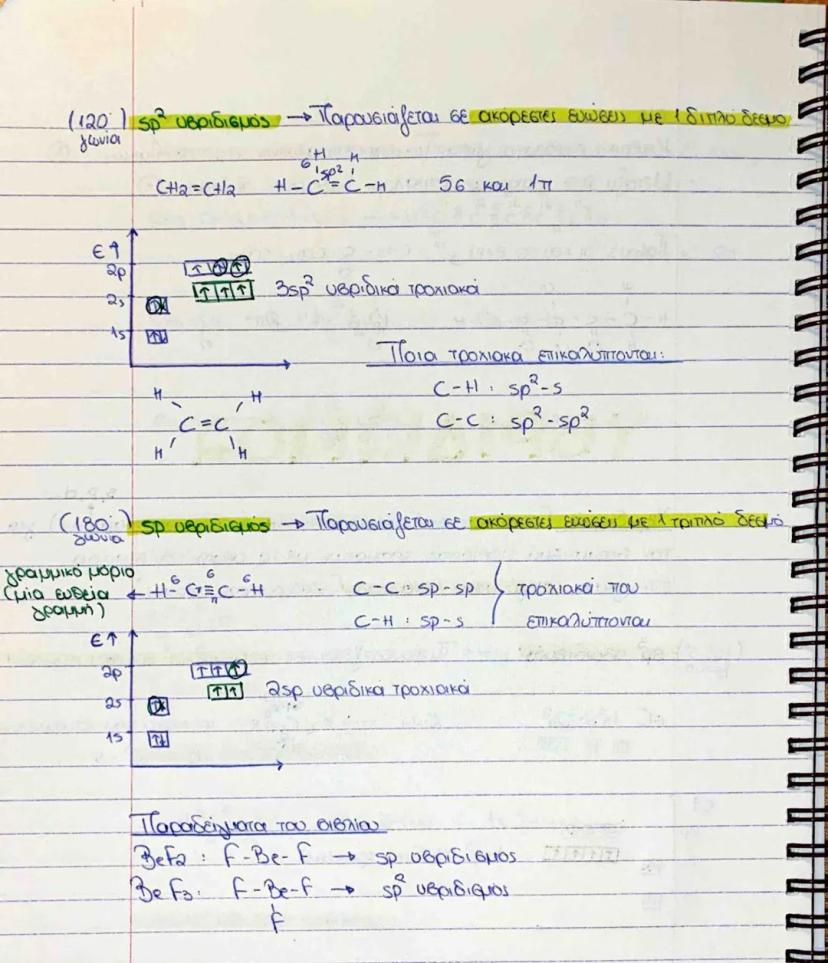 (120° γωνία) sp² υβριδισμός → Παρουσιάζεται σε ακόρεστες ενώσεις με 1 διπλό δεσμό
CH2=CH2 H-C=C-H 5σ και 1π
σ H H
sp²
E↑
2p ↑ ↑ ↑
↑ ↑ ↑ 3sp² υβριδικά τροχιακά
2s
1s ↑↓
Ποια τροχιακά επικαλύπτονται:
H H
C-H : sp²-s
C=C
C-C : sp²-sp²
H H
(180° γωνία) sp υβριδισμός → Παρουσιάζεται σε ακόρεστες ενώσεις με 1 τριπλό δεσμό
γραμμικό μόριο (μία ευθεία γραμμή) ← H-C≡C-H
σ σ σ
π π
C-C sp-sp } τροχιακά που
C-H : sp-s επικαλύπτονται
E↑
2p ↑ ↑ ↑
↑ ↑ 2sp υβριδικά τροχιακά
2s
1s ↑↓
Παραδείγματα του βιβλίου
BeF2 : F-Be-F → sp υβριδισμος
BeF3: F-Be-F → sp² υβριδισμος
F